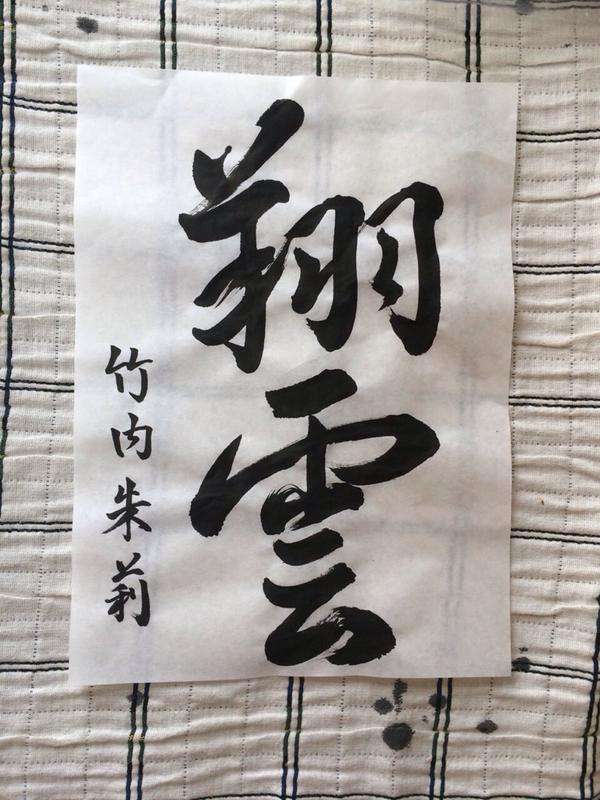 翔雲
竹内朱莉